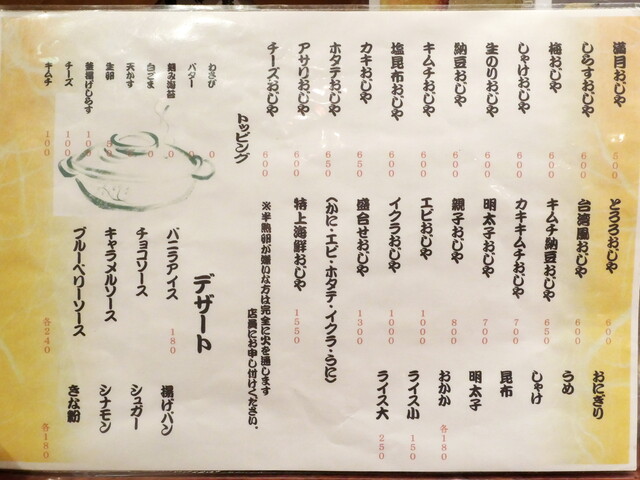 満月おじや 500
しらすおじや 600
梅おじや 600
しゃけおじや 600
生のりおじや 600
納豆おじや 600
キムチおじや
塩昆布おじや 600
カキおじや 650
ホタテおじや 650
アサリおじや 600
チーズおじや 600
トッピング
わさび
バター
刻み海苔
白ごま
天かす
生卵
釜揚げしらす
チーズ 100
キムチ 100
とろろおじや 600
台湾風おじや 600
キムチ納豆おじや 650
カキキムチおじや 700
明太子おじや 700
親子おじや 800
エビおじや 1000
イクラおじや 1000
盛合せおじや 1300
特上海鮮おじや 1550
(かに・エビ・ホタテ・イクラ・うに)
※半熟卵が嫌いな方は完全に火を通します
店員にお申し付けください。
おにぎり
うめ
しゃけ
昆布
明太子
おかか
各180
ライス小 150
ライス大 250
デザート
バニラアイス 180
チョコソース
キャラメルソース
ブルーベリーソース
各240
揚げパン
シュガー
シナモン
きな粉
各180